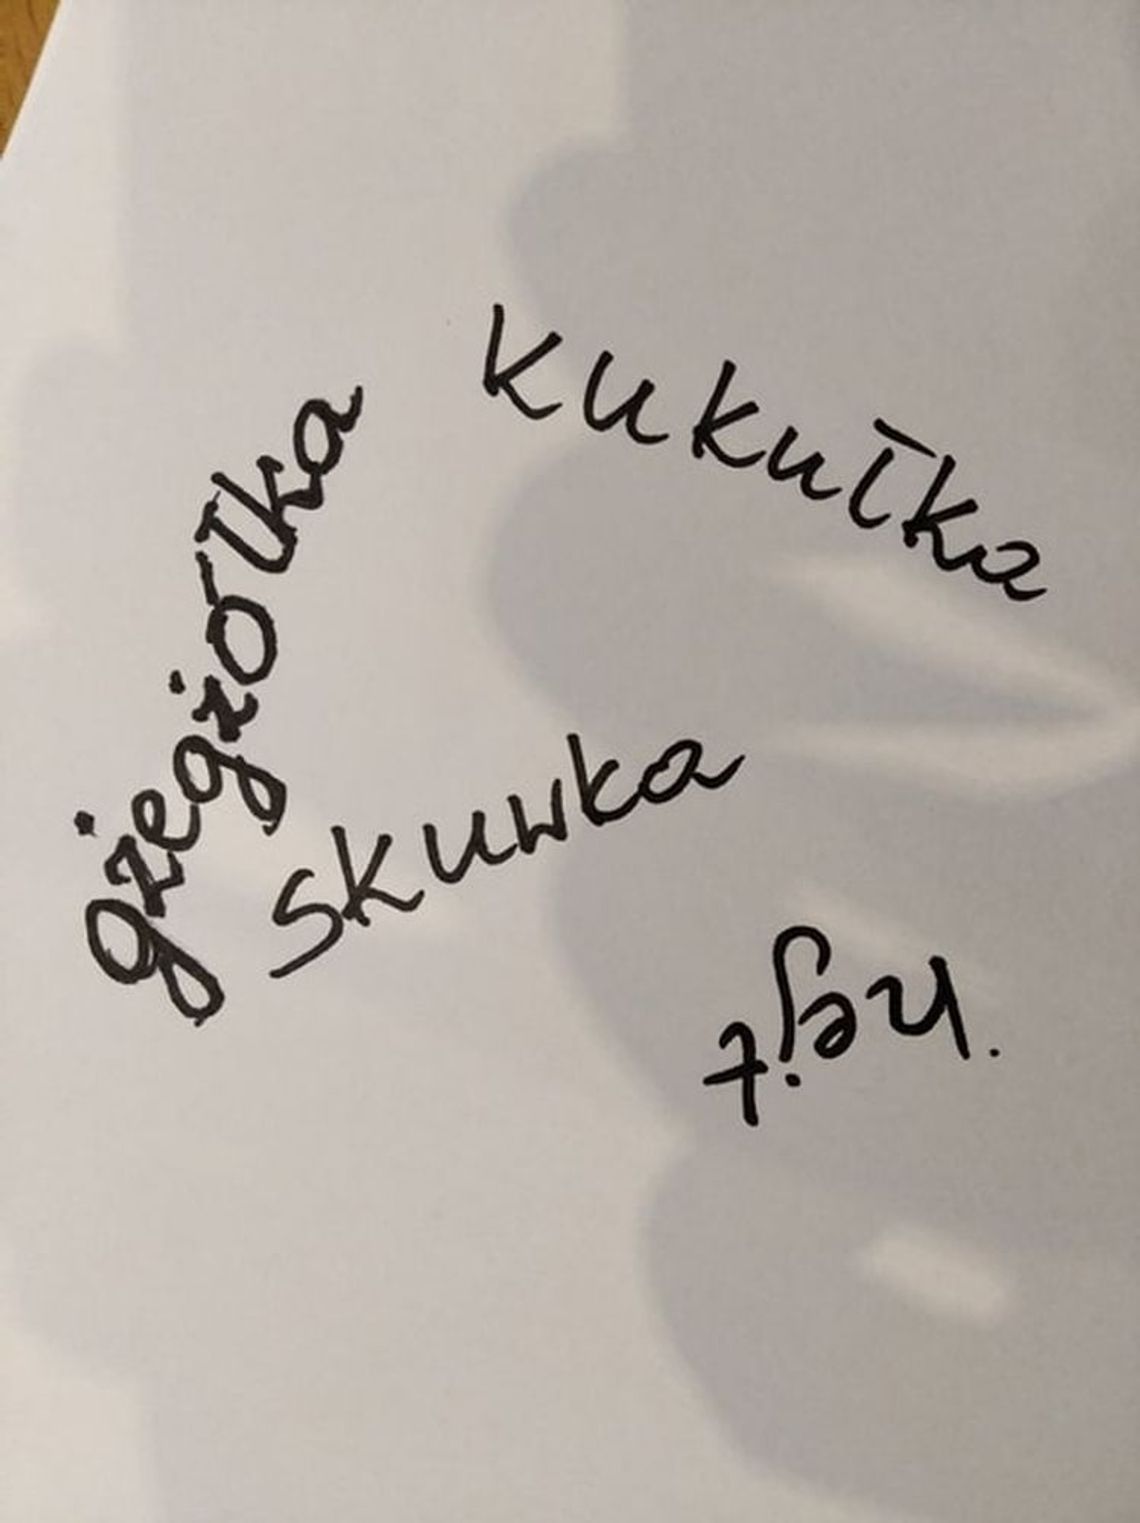 kukułka
gżegżółka
skuwka
hejt